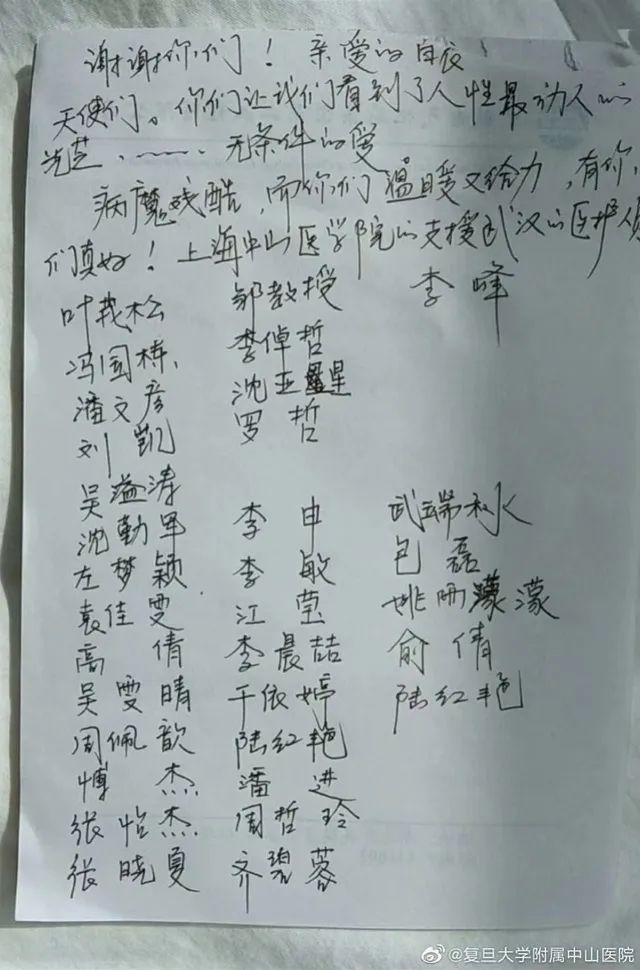 谢谢你们！亲爱的白衣
天使们。你们让我们看到了人性最动人的
光芒，——无条件的爱。
病魔残酷，而你们温暖又给力，有你
们真好！上海中山医学院的支援武汉的医护
叶茂松 邹教授 李峰
冯国栋 李倬哲
潘文彦 沈亚星
刘凯 罗哲
吴溢涛
沈勤军 李申 武端
左梦颖 李敏 包磊
袁佳雯 江莹 姚雨濛
高倩 李晨喆 俞倩
吴雯晴 于依婷 陆红艳
周佩歆 陆红艳
傅杰 潘进
张怡杰 周哲玲
张晓夏 齐碧蓉
@复旦大学附属中山医院